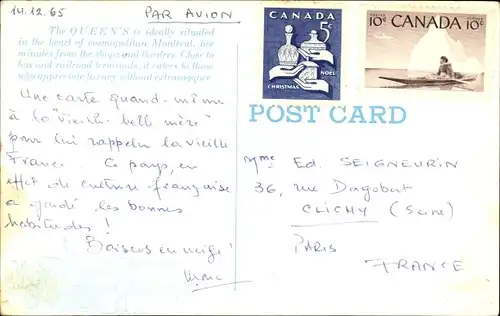 14.12.65
PAR AVION
The QUEEN'S is ideally situated
in the heart of cosmopolitan Montreal, five
minutes from the shops and theatres. Close to
bus and railroad terminals, it caters to those
who appreciate luxury without extravagance
CANADA
5c
NOEL
CHRISTMAS
10c
CANADA
10c
POSTES POSTAGE
POST CARD
Une carte quand-même
à la "vieille belle mère"
pour lui rappeler la vieille
France. Ce pays, en
effet de culture française
a gardé les bonnes
habitudes !
Baisers en neige !
Mme Ed. SEIGNEURIN
36, rue Dagobert
CLICHY (Seine)
PARIS
FRANCE